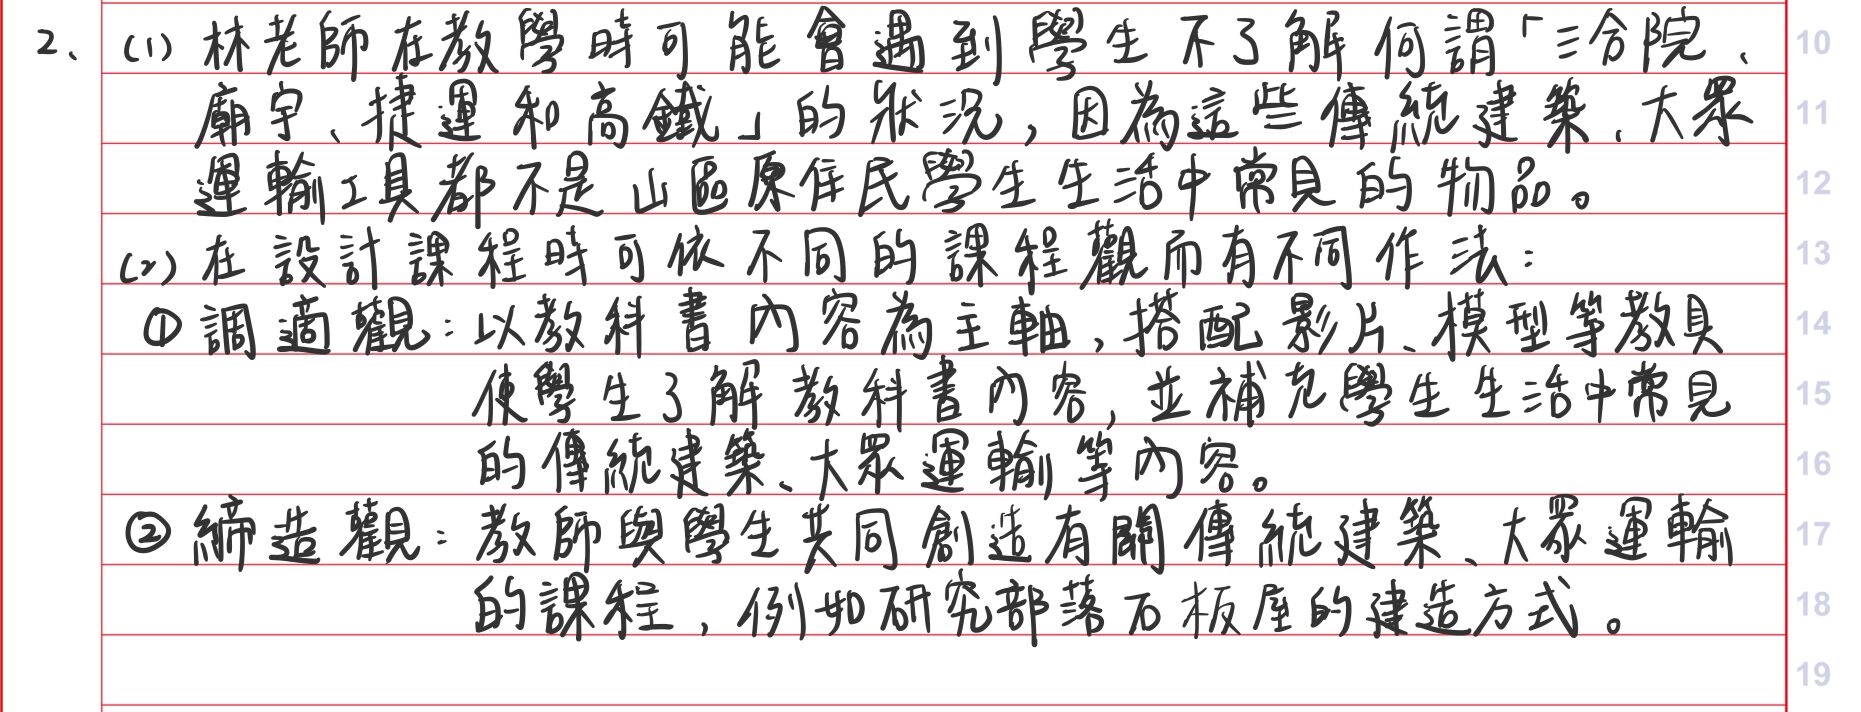 2、(1) 林老師在教學時可能會遇到學生不了解何謂「三合院、 10
廟宇、捷運和高鐵」的狀況，因為這些傳統建築、大眾 11
運輸工具都不是山區原住民學生生活中常見的物品。 12
(2) 在設計課程時可依不同的課程觀而有不同作法： 13
① 調適觀：以教科書內容為主軸，搭配影片、模型等教具 14
使學生了解教科書內容，並補充學生生活中常見 15
的傳統建築、大眾運輸等內容。 16
② 締造觀：教師與學生共同創造有關傳統建築、大眾運輸 17
的課程，例如研究部落石板屋的建造方式。 18
19